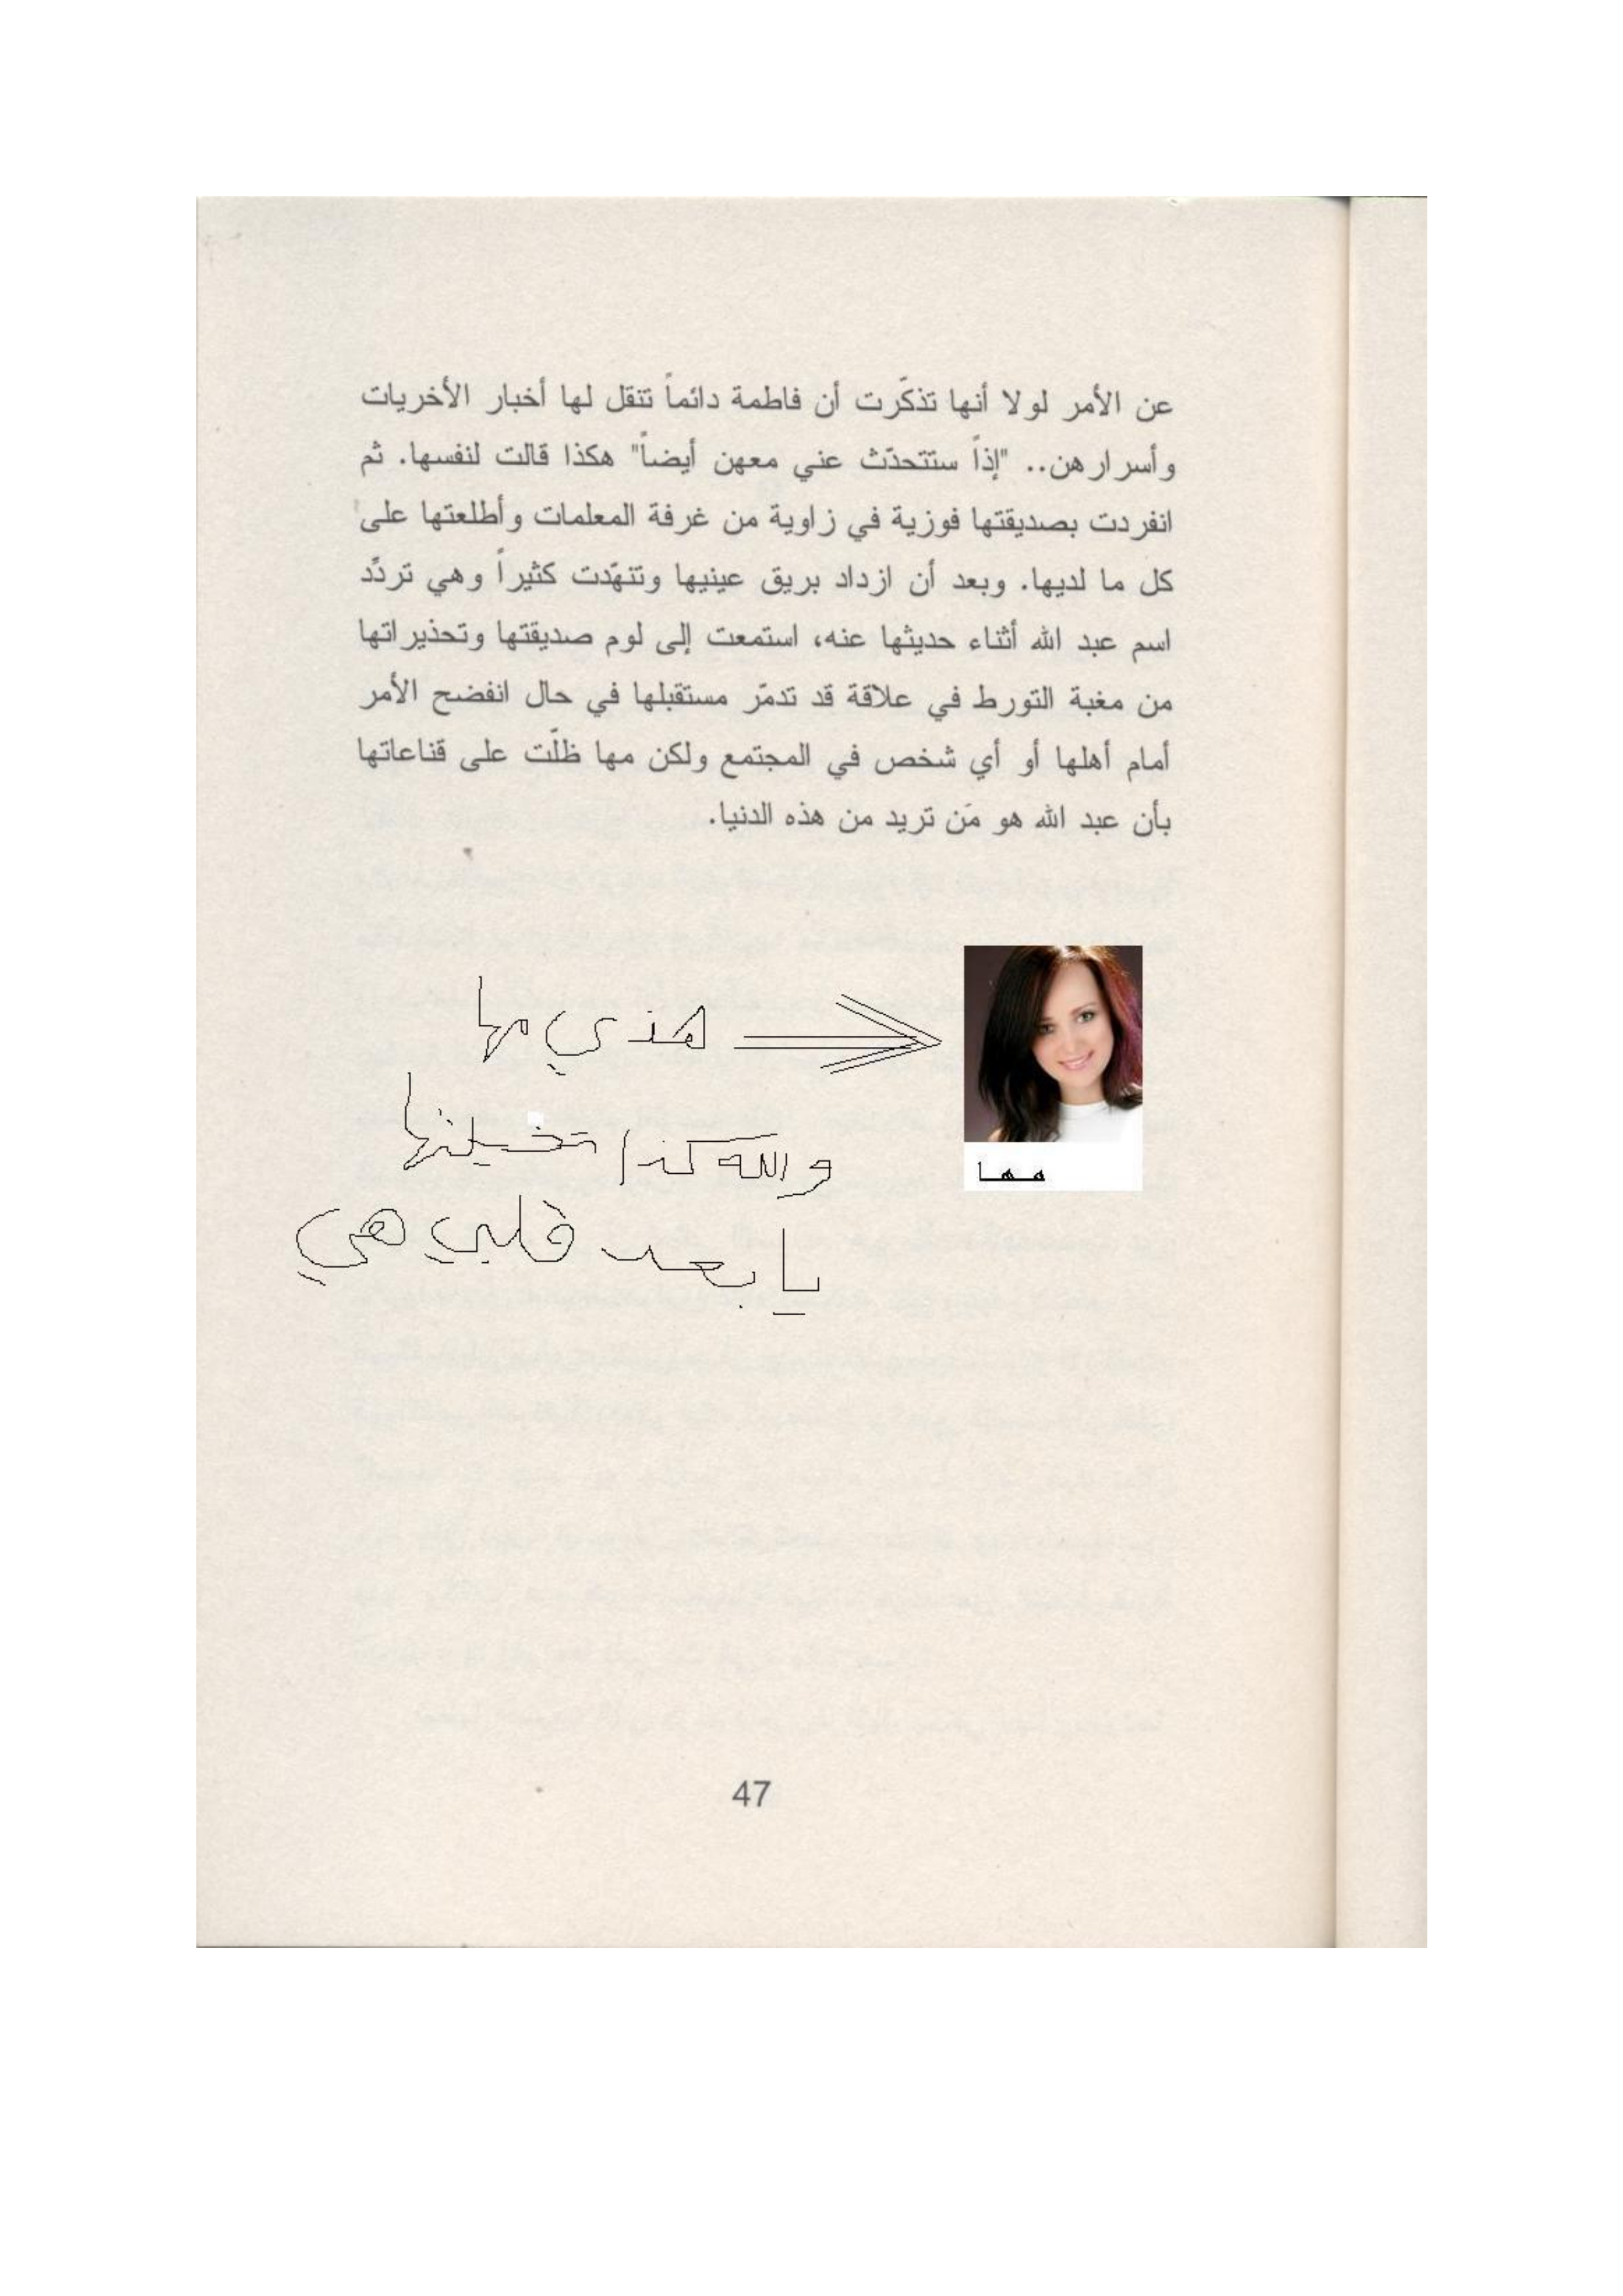 عن الأمر لولا أنها تذكّرت أن فاطمة دائماً تنقل لها أخبار الأخريات
وأسرارهن.. "إذاً ستتحدّث عني معهن أيضاً" هكذا قالت لنفسها. ثم
انفردت بصديقتها فوزية في زاوية من غرفة المعلمات وأطلعتها على
كل ما لديها. وبعد أن ازداد بريق عينيها وتنهّدت كثيراً وهي تردّد
اسم عبد الله أثناء حديثها عنه، استمعت إلى لوم صديقتها وتحذيراتها
من مغبة التورط في علاقة قد تدمّر مستقبلها في حال انفضح الأمر
أمام أهلها أو أي شخص في المجتمع ولكن مها ظلّت على قناعاتها
بأن عبد الله هو مَن تريد من هذه الدنيا.
هذي مها
والله كذا تخيلتها
يا بعد قلبي هي
مها
47